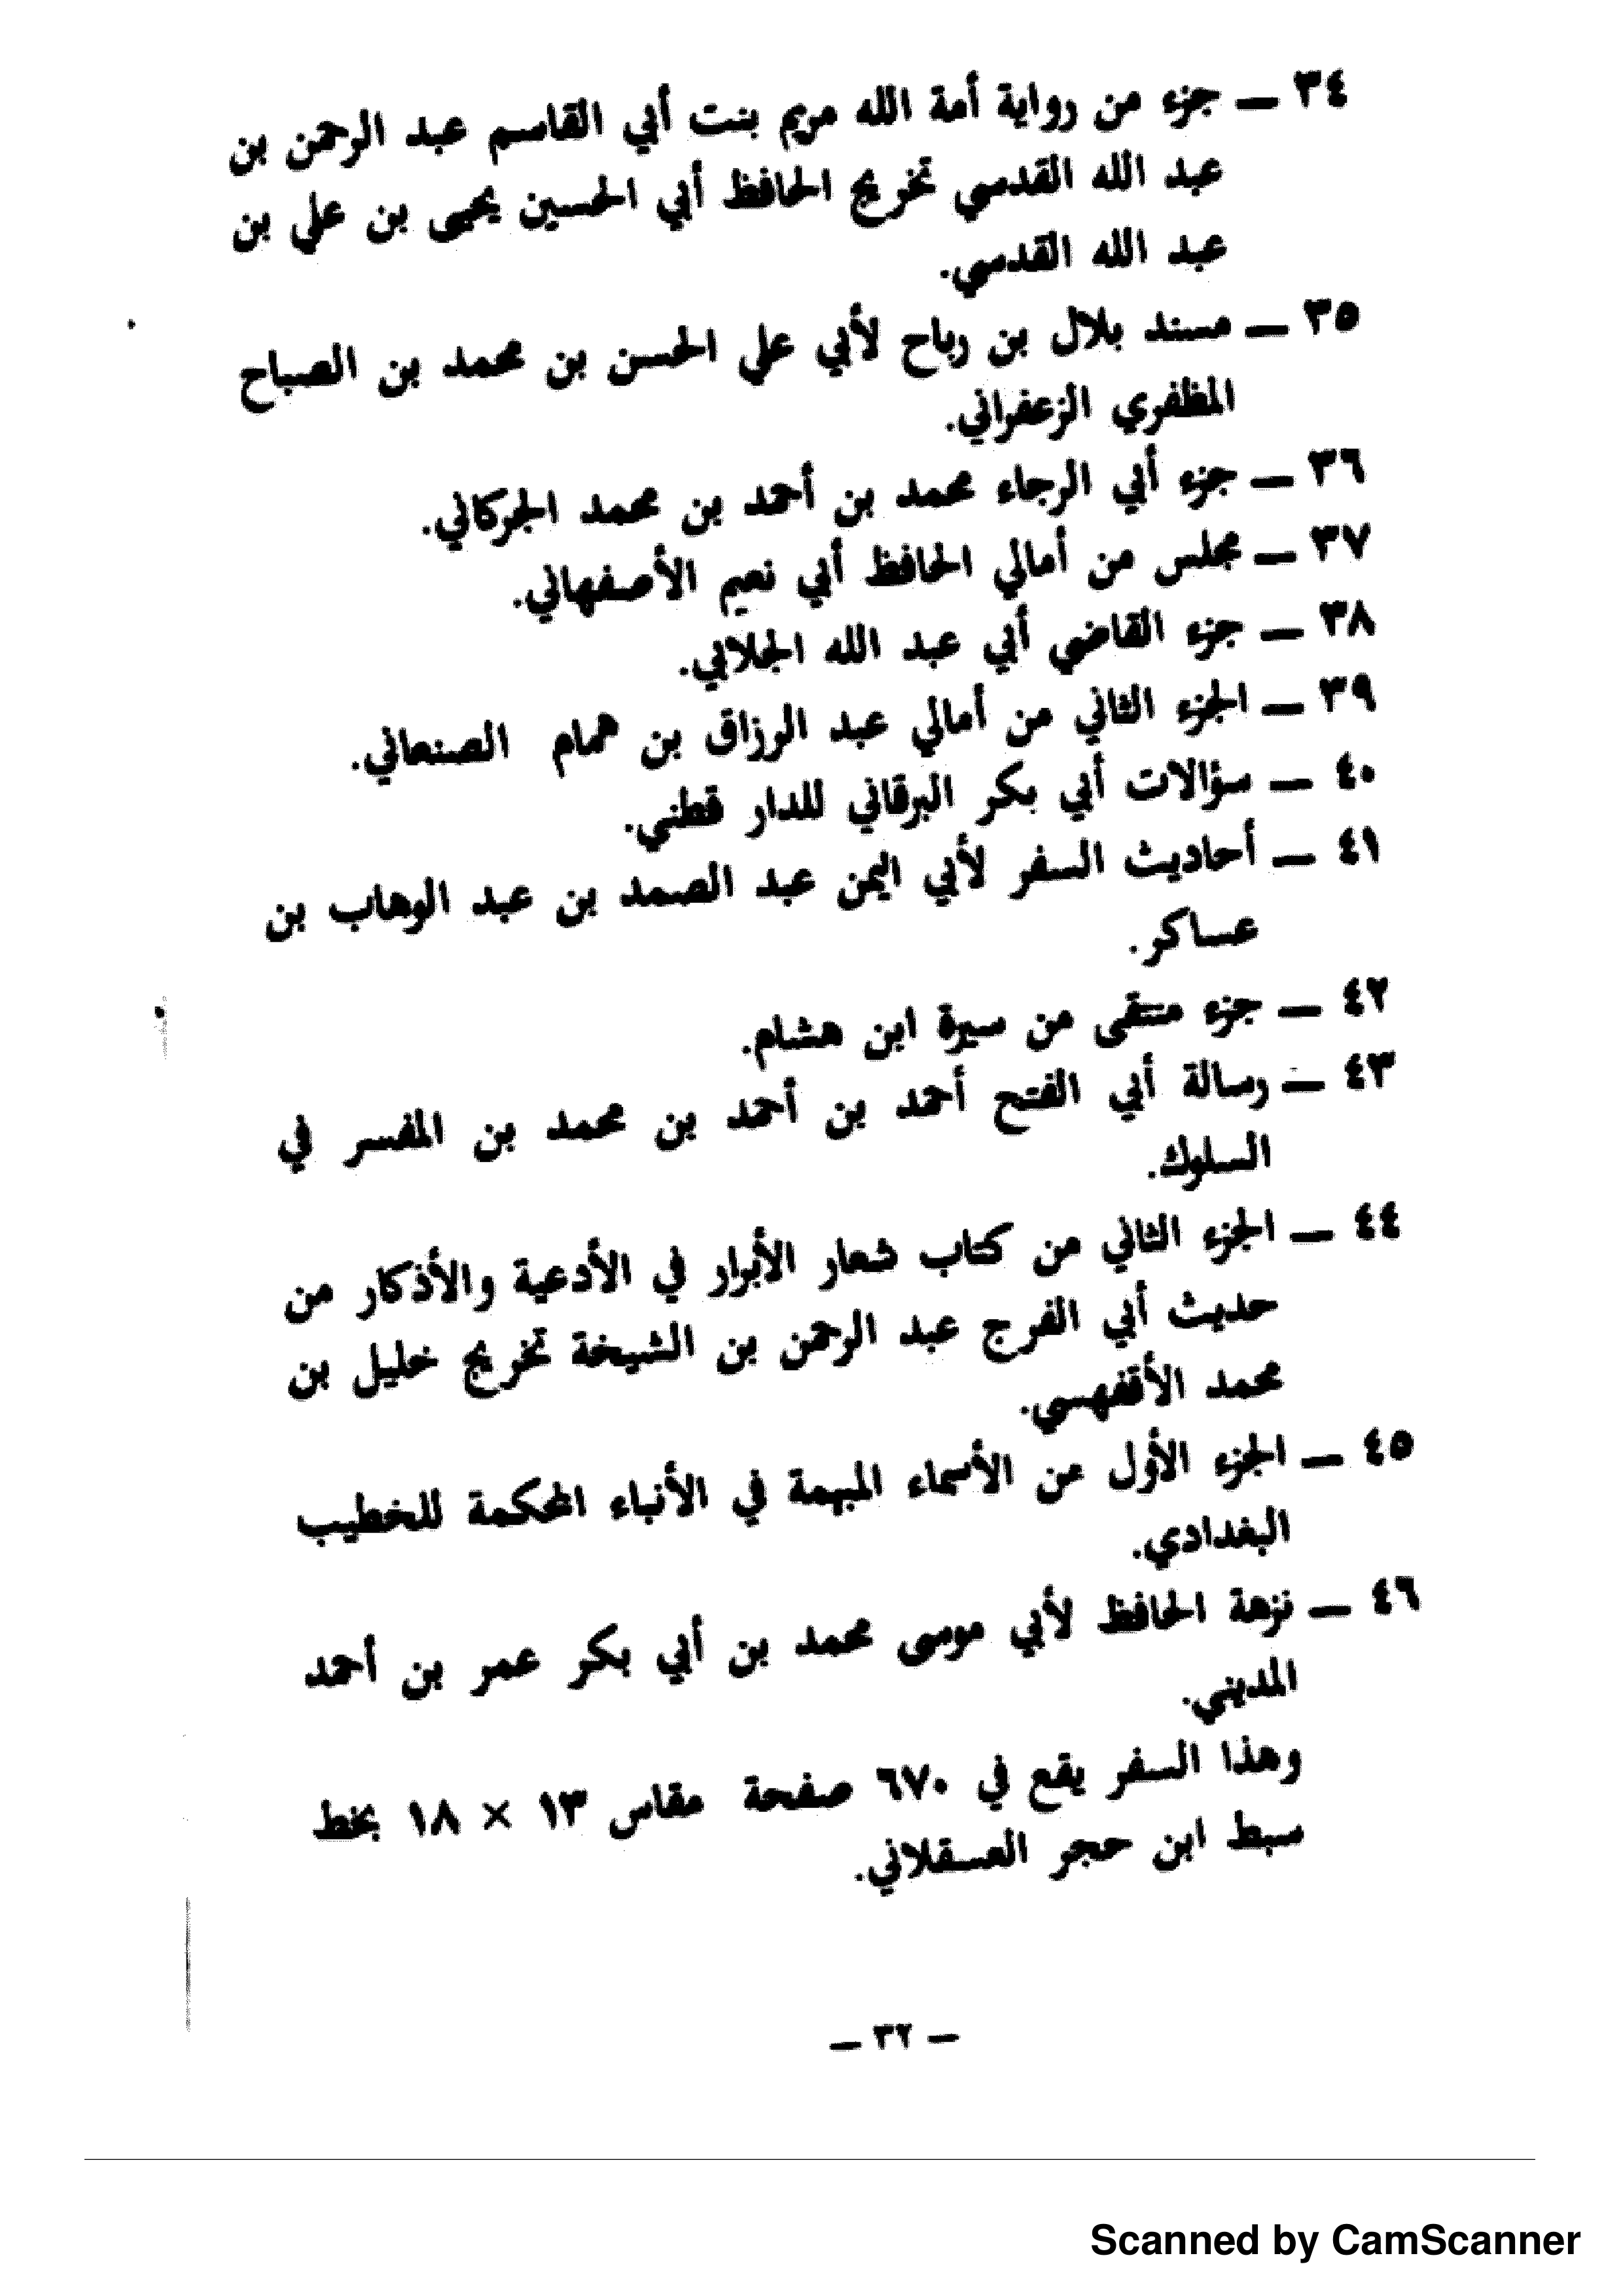 ٣٤ — جزء من رواية أمة الله مريم بنت أبي القاسم عبد الرحمن بن
عبد الله القدسي تخريج الحافظ أبي الحسين يحيى بن علي بن
عبد الله القدسي.
٣٥ — مسند بلال بن رباح لأبي علي الحسن بن محمد بن الصباح
المظفري الزعفراني.
٣٦ — جزء أبي الرجاء محمد بن أحمد بن محمد الجركاني.
٣٧ — مجلس من أمالي الحافظ أبي نعيم الأصفهاني.
٣٨ — جزء القاضي أبي عبد الله الجلابي.
٣٩ — الجزء الثاني من أمالي عبد الرزاق بن همام الصنعاني.
٤٠ — سؤالات أبي بكر البرقاني للدار قطني.
٤١ — أحاديث السفر لأبي اليمن عبد الصمد بن عبد الوهاب بن
عساكر.
٤٢ — جزء منتقى من سيرة ابن هشام.
٤٣ — رسالة أبي الفتح أحمد بن أحمد بن محمد بن المفسر في
السلوك.
٤٤ — الجزء الثاني من كتاب شعار الأبرار في الأدعية والأذكار من
حديث أبي الفرج عبد الرحمن بن الشيخة تخريج خليل بن
محمد الأقفهسي.
٤٥ — الجزء الأول من الأسماء المبهمة في الأنباء المحكمة للخطيب
البغدادي.
٤٦ — نزهة الحافظ لأبي موسى محمد بن أبي بكر عمر بن أحمد
المديني.
وهذا السفر يقع في ٦٧٠ صفحة مقاس ١٣ × ١٨ بخط
سبط ابن حجر العسقلاني.
— ٣٢ —
Scanned by CamScanner